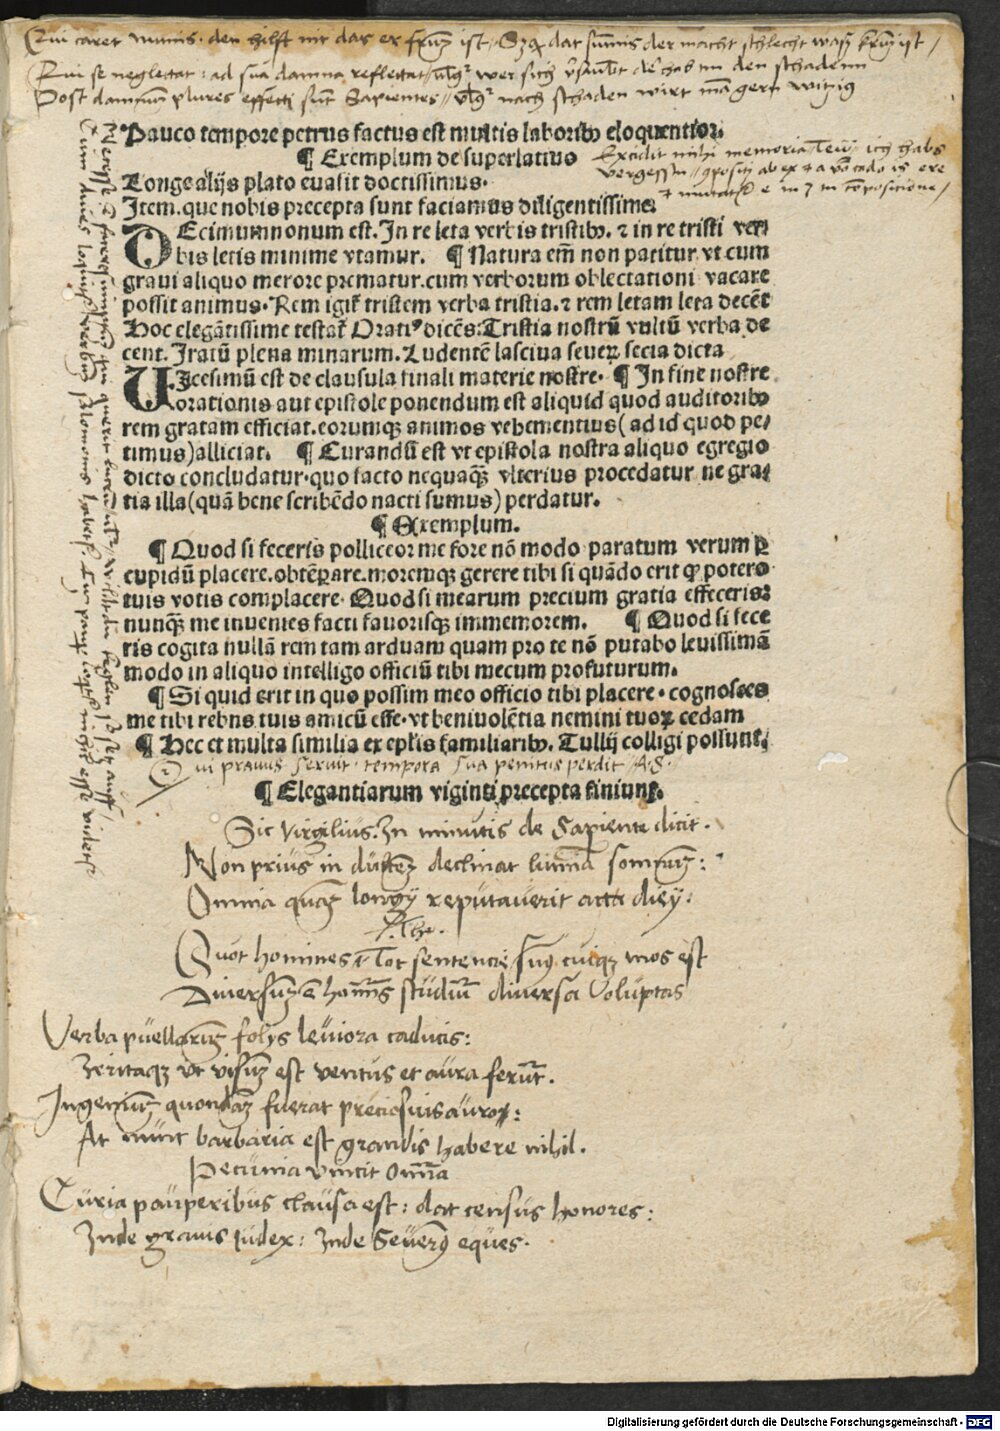 Qui caret numis. den hilft nit das er frum ist // dat sumis der macht schlecht was krum ist /
Qui se neglectat: ad sua damna reflectat // wer sich den hab im den schadenn
Post damnum plures effecti sunt Sapientes // nach schaden wirt mā gern witzig
Pauco tempore petrus factus est multis laboribꝰ eloquentior.
¶ Exemplum de superlatiuo
Excidit mihi memoria ich habs
vergessen
Longe alijs plato euasit doctissimus.
mutat e in i in cōpositione /
Item. que nobis precepta sunt faciamus diligentissime.
DEcimumnonum est. In re leta verbis tristibꝰ. ⁊ in re tristi ver⸗
bis letis minime vtamur. ¶ Natura em̄ non patitur vt cum
graui aliquo merore prematur. cum verborum oblectationi vacare
possit animus. Rem igit᷑ tristem verba tristia. ⁊ rem letam leta decēt
Hoc elegātissime testat᷑ Oratiꝰ dicēs: Tristia nostrū vultū verba de
cent. Iratū plena minarum. Ludentē lasciua seueꝝ seria dicta
VIcesimū est de clausula finali materie nostre. ¶ In fine nostre
orationis aut epistole ponendum est aliquid quod auditoribꝰ
rem gratam efficiat. eorumqꝫ animos vehementius (ad id quod pe⸗
timus) alliciat. ¶ Curandū est vt epistola nostra aliquo egregio
dicto concludatur. quo facto nequaqꝫ̄ vlterius procedatur ne gra⸗
tia illa (quā bene scribēdo nacti sumus) perdatur.
¶ Exemplum.
¶ Quod si feceris polliceor me fore nō modo paratum verum ⁊
cupidū placere. obtēꝑare. moremqꝫ gerere tibi si quādo erit qꝫ potero
tuis votis complacere. Quod si mearum precium gratia effeceris:
nunqꝫ̄ me inuenies facti fauorisqꝫ immemorem. ¶ Quod si fece
ris cogita nullā rem tam arduam quam pro te nō putabo leuissimā
modo in aliquo intelligo officiū tibi mecum profuturum.
¶ Si quid erit in quo possim meo officio tibi placere. cognosces
me tibi rebus tuis amicū esse. vt beniuolētia nemini tuoꝝ cedam
¶ Hec et multa similia ex epl̄is familiaribꝰ. Tullij colligi possunt.
Qui pravis servit. tempora sua penitus perdit / A. S.
¶ Elegantiarum viginti precepta finiunt.
Sic Virgilius. In minutis de Sapiente dicit.
Non prius in dulcem declinat lumina somnum:
Omnia quam longi reputaverit acta diey:
Quot homines Tot sentencie suus cuiqꝫ mos est
Diversum ē studiū diversa Voluptas
Verba puellarum folys leviora caducis:
Irritaqꝫ ut visum est ventus et aura ferūt.
Ingenium quondam fuerat preciosius auro:
At nunc barbaria est grandis habere nihil.
Pecunia vincit omnia
Curia pauperibus clausa est: dat census honores:
Inde gravis iudex: Inde Severus eques.
Digitalisierung gefördert durch die Deutsche Forschungsgemeinschaft - DFG